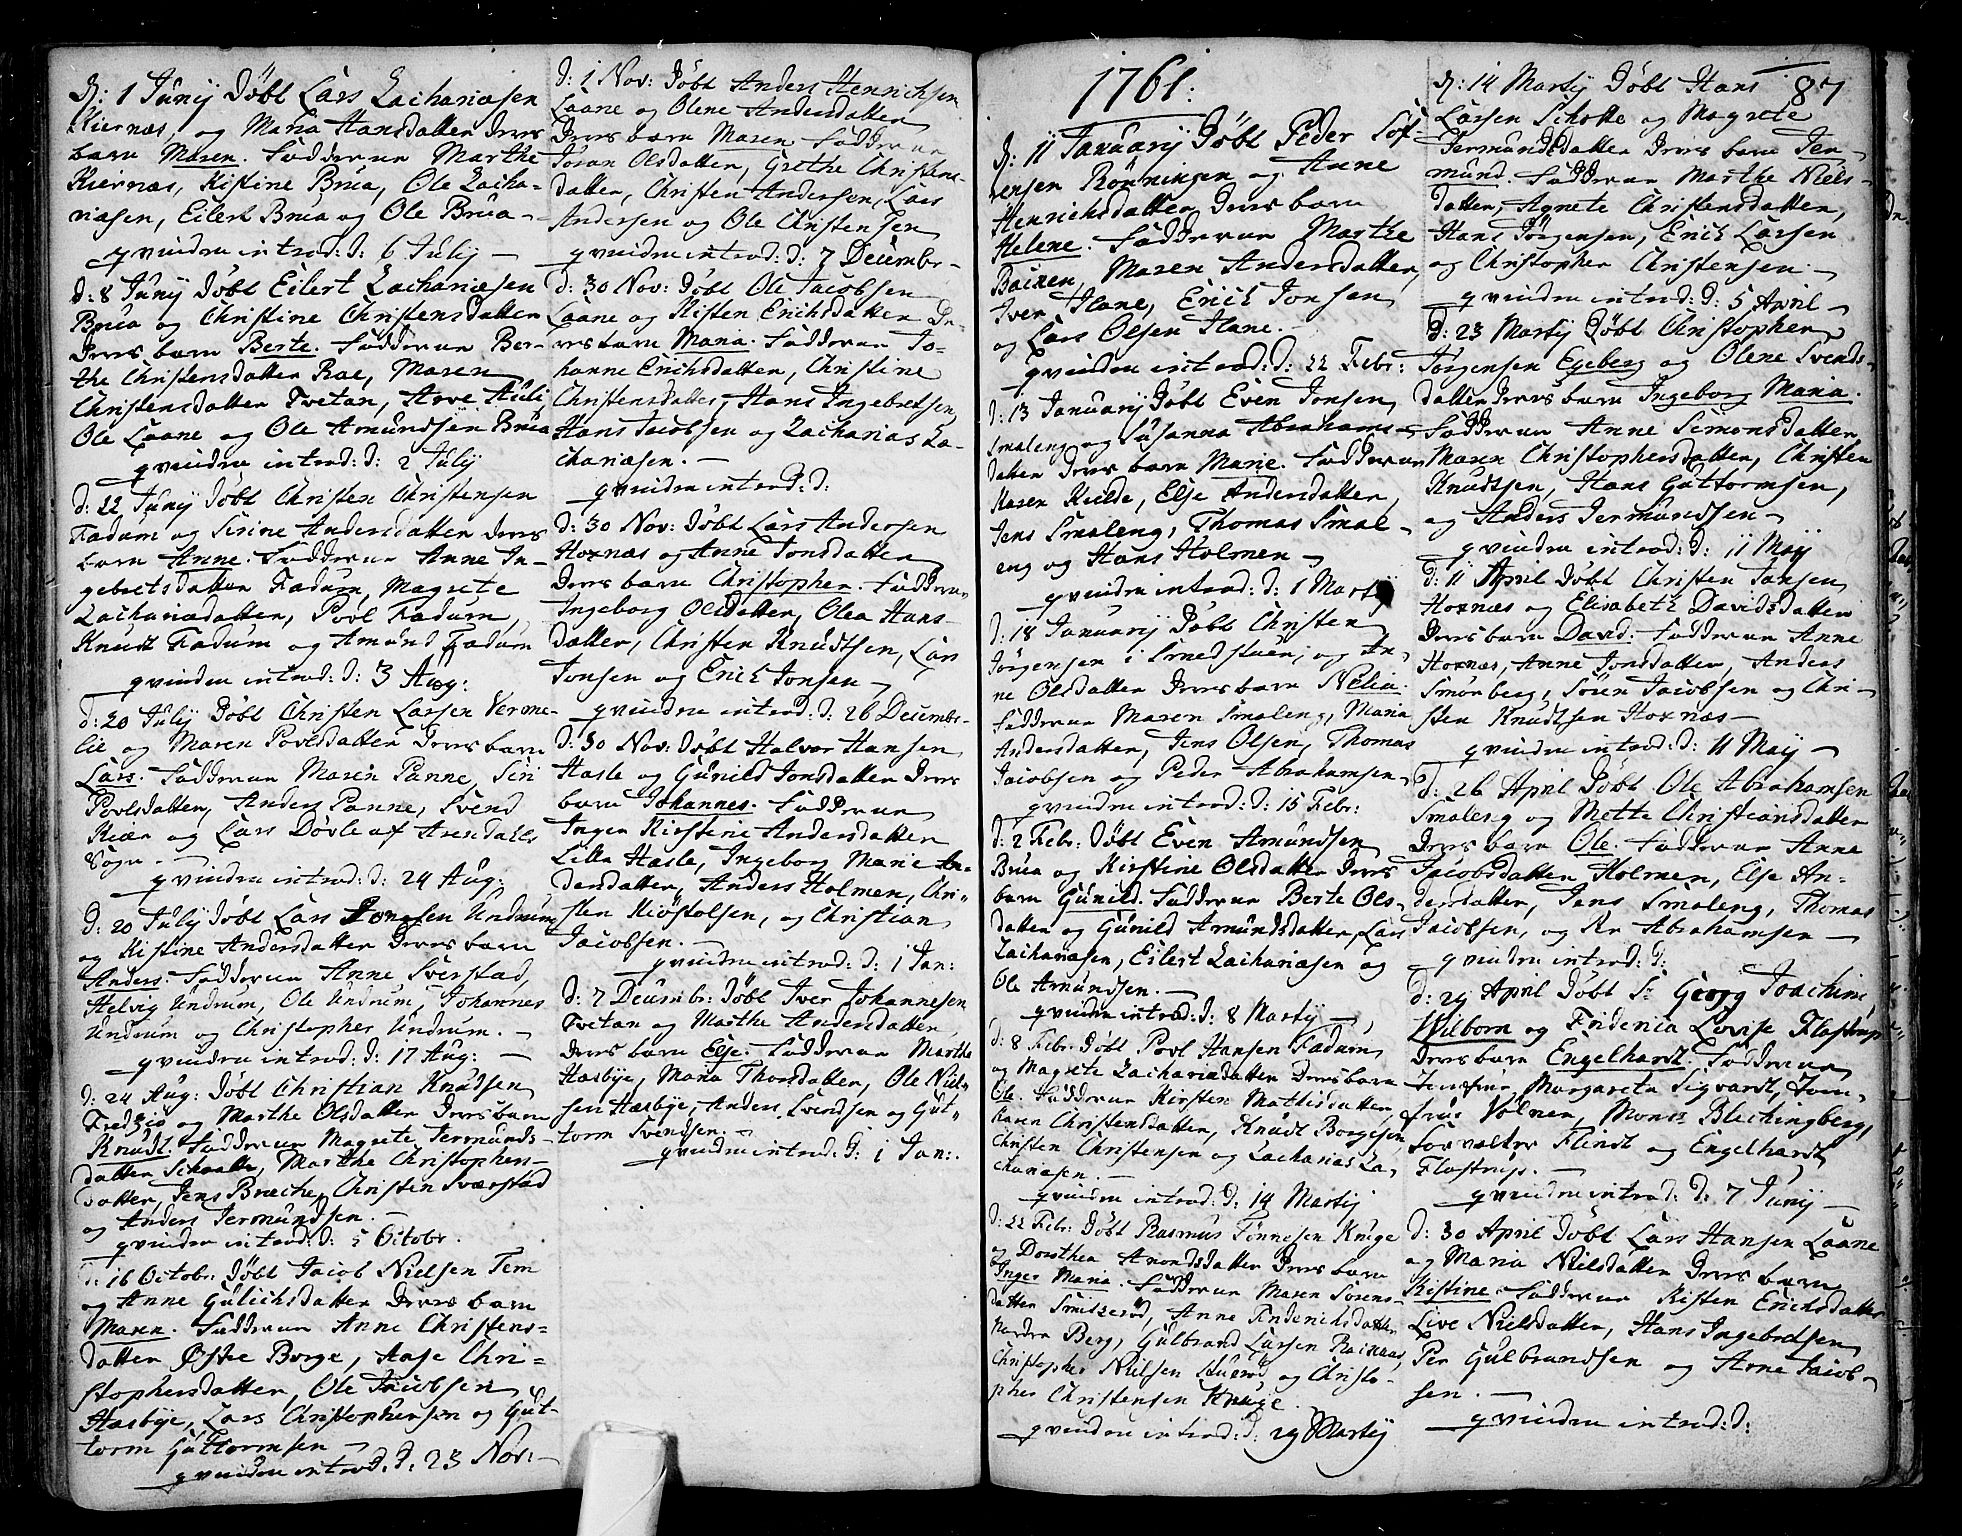 D: 1 Junij Döbt Lars Zachariæsen
Kiernæs, og Maria Hansdatter deres
barn Maren. Fadderne Marthe
Kiernæs, Kistine Brua, Ole Zacha-
riæsen, Eilert Brua og Ole Brua -
qvinden introd: d: 6 Julij -
d: 8 Junij Döbt Eilert Zachariæsen
Brua og Christine Christensdatter
deres barn Berte. Fadderne Ber-
the Christensdatter Rae, Maren
Christensdatter Tvetan, Arve Auli
Ole Laane og Ole Amundsen Brua
qvinden introd: d: 2 Julij
d: 22 Junij Döbt Christen Christensen
Fadum og Sirine Andersdatter deres
barn Anne. Fadderne Anne In-
gebretsdatter Fadum, Magrete
Zachariædatter, Povl Fadum,
Knudt Fadum og Amund Fadum
qvinden introd: d: 3 Aug:
d: 20 Julij Döbt Christen Larsen Verme-
lie og Maren Povlsdatter deres barn
Lars. Fadderne Maren Panne, Siri
Povlsdatter, Anders Panne, Svend
Kiær og Lars Dövle af Arendahls
Sogn -
qvinden introd: d: 24 Aug:
d: 20 Julij Döbt Lars Undrum
og Kistine Andersdatter deres barn
Anders. Fadderne Anne Sverstad,
Helvig Undrum, Ole Undrum, Johannes
Undrum og Christopher Undrum. -
qvinden introd: d: 17 Aug: -
d: 24 Aug: Döbt Christian Knudsen
Fredziö og Marthe Olsdatter deres barn
Knudt. Fadderne Magrete Jermunds-
datter Schotte, Marthe Christophers-
datter, Jens Bræche, Christen Sværstad
og Anders Jermundsen. -
qvinden introd: d: 5 Octobr.
d: 16 Octobr: Döbt Jacob Nielsen Tem
og Anne Gulichsdatter deres barn
Maren. Fadderne Anne Christens-
datter Østre Borge, Aase Chri-
stophersdatter, Ole Jacobsen
Hæsbye, Lars Christophersen og Gut-
torm Guttormsen -
qvinden introd: d: 23 Nov: -
d: 1 Nov: Döbt Anders Henrichsen
Laane og Olene Andersdatter
deres barn Maren Fadderne
Joran Olsdatter, Grethe Christens-
datter, Christen Andersen, Lars
Andersen og Ole Christensen
qvinden introd: d: 7 Decembr -
d: 30 Nov: Döbt Ole Jacobsen
Laane og Kisten Erichsdatter De-
res barn Maria. Fadderne Jo-
hanne Erichsdatter, Christine
Christensdatter, Hans Ingebretsen,
Hans Jacobsen og Zacharias Za-
chariæsen. -
qvinden introd: d:
d: 30 Nov: Döbt Lars Andersen
Hoxnæs og Anne Jonsdatter
deres barn Christopher. Fadderne
Ingeborg Olsdatter, Olea Hans-
datter, Christen Knudtsen, Lars
Jonsen og Erich Jonsen -
qvinden introd: d: 26 Decembr.
d: 30 Nov: Döbt Halvor Hansen
Hasle og Gunild Jonsdatter deres
barn Johannes. Fadderne
Inger Kirstine Andersdatter
Lille Hasle, Ingeborg Marie An-
dersdatter, Anders Holmen, Chri-
sten Kiöstolsen, og Christian
Jacobsen. -
qvinden introd: d: 1 Jan:
d: 7 Decembr: Döbt Iver Johannesen
Tvetan og Marthe Andersdatter,
deres barn Else. Fadderne Marthe
Hæsbye, Maria Thorsdatter, Ole Niel-
sen Hæsbye, Anders Svendsen og Gut-
torm Svendsen. -
qvinden introd: d: 1 Jan:.
1761:
D: 11 Januarij Döbt Peder Sör-
ensen Rönningen og Anne
Henrichsdatter deres barn
Helene. Fadderne Marthe
Backen, Maren Andersdatter,
Iver Hane, Erich Jonsen
og Lars Olsen Hane. -
qvinden introd: d: 22 Febr:
d: 13 Januarij Döbt Even Jonsen
Smaleng og Susanna Abrahams-
datter deres barn Marie. Fadderne
Maren Kulde, Else Andersdatter,
Jens Smaleng, Thomas Smal-
eng og Hans Holmen -
qvinden introd: d: 1 Martij
d: 18 Januarij Döbt Christen
Jörgensen i Smedstuen, og An-
ne Olsdatter deres barn Nelia
Fadderne Maren Smaleng, Maria
Andersdatter, Jens Olsen, Thomas
Jacobsen og Peder Abrahamsen -
qvinden introd: d: 15 Febr:
d: 2 Febr: Döbt Even Amundsen
Brua og Kirstine Olsdatter deres
barn Gunild. Fadderne Berte Ols-
datter og Gunild Amundsdatter, Lars
Zachariæsen, Eilert Zachariæsen og
Ole Amundsen. -
qvinden introd: d: 8 Martij -
d: 8 Febr: Döbt Povl Hansen Fadum
og Magrete Zachariædatter deres barn
Ole. Fadderne Kirsten Mattisdatter,
Karen Christensdatter, Knudt Borgesen,
Christen Christensen og Zacharias Za-
chariæsen. -
qvinden introd: d: 14 Martij
d: 22 Febr: Döbt Rasmus Tönnesen Knuge
og Dorothea Amondsdatter deres barn
Inger Maria. Fadderne Maren Sörens-
datter Smitzeröd, Anne Friderichsdatter
Nordre Berg, Gulbrand Larsen Raxnæs,
Christopher Nielsen og Christo-
pher Christensen Knuge.
qvinden introd: d: 29 Martij
87
D: 14 Martij Döbt Hans
Larsen Schotte og Magrete
Jermundsdatter deres barn Jer-
mund. Fadderne Marthe Niels-
datter, Agnete Christensdatter,
Hans Jörgensen, Erich Larsen
og Christopher Christensen -
qvinden introd: d: 5 April -
D: 23 Martij Döbt Christopher
Jörgensen Egeberg og Olene Svends-
datter deres barn Ingeborg Maria.
Fadderne Anne Simonsdatter,
Maren Christophersdatter, Christen
Knudtsen, Hans Guttormsen,
og Anders Jermundsen -
qvinden introd: d: 11 Maij
d: 11 April Döbt Christen Jansen
Hoxnæs og Elisabeth Davidsdatter
deres barn David. Fadderne Anne
Hoxnæs, Anne Jonsdatter, Anders
Smörberg, Sören Jacobsen og Chri-
sten Knudtsen Hoxnæs -
qvinden introd: d: 11 Maij -
d: 26 April Döbt Ole Abrahamsen
Smaleng og Mette Christiansdatter
deres barn Ole. Fadderne Anne
Jacobsdatter Holmen, Else An-
dersdatter, Jens Smaleng, Thomas
Jacobsen, og Per Abrahamsen -
qvinden introd: d:
d: 29 April Döbt Sr Georg Joachim
Wilborn og Friderica Lovise Flostrup
deres barn Engelhardt. Fadderne
Jomfrue Margareta Sigvardt, Jom-
frue Volner, Monsr Blechingberg,
Forvalter Flindt og Engelhardt
Flostrup. -
qvinden introd: d: 7 Junij -
d: 30 April Döbt Lars Hansen Laane
og Maria Nielsdatter deres barn
Kistine. Fadderne Kisten Erichsdatter
Live Nielsdatter, Hans Ingebretsen
Per Gulbrandsen og Arne Jacob-
sen. -
qvinden introd: d: